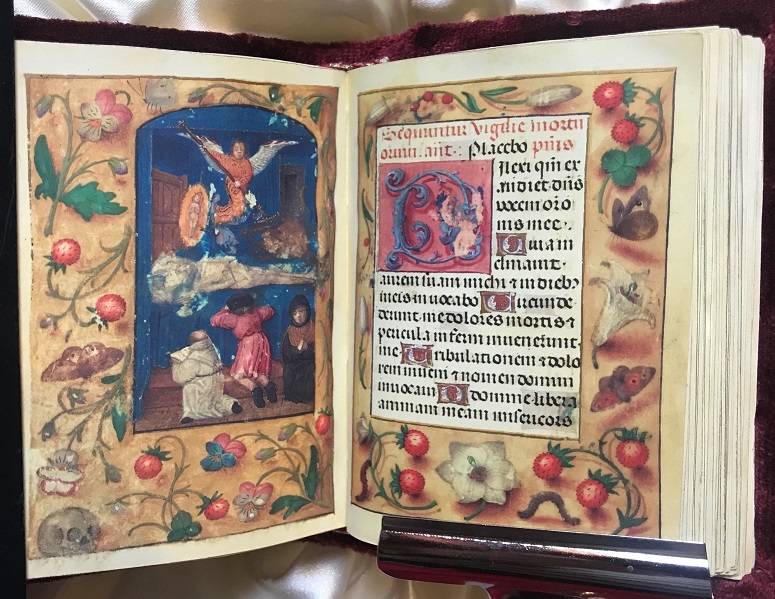 Sequuntur vigilie mortu
orum. ant. Placebo p̄us
Dilexi qm̄ ex
audiet dn̄s
vocem oro
nis mee.
Quia in
clinauit
aurem suam michi & in dieb9
meis inuocabo Circumde
derunt me dolores mortis &
pericula inferni inuenerunt
me Tribulationem & dolo
rem inueni & nomen domini
inuocaui O domine libera
animam meam misericors